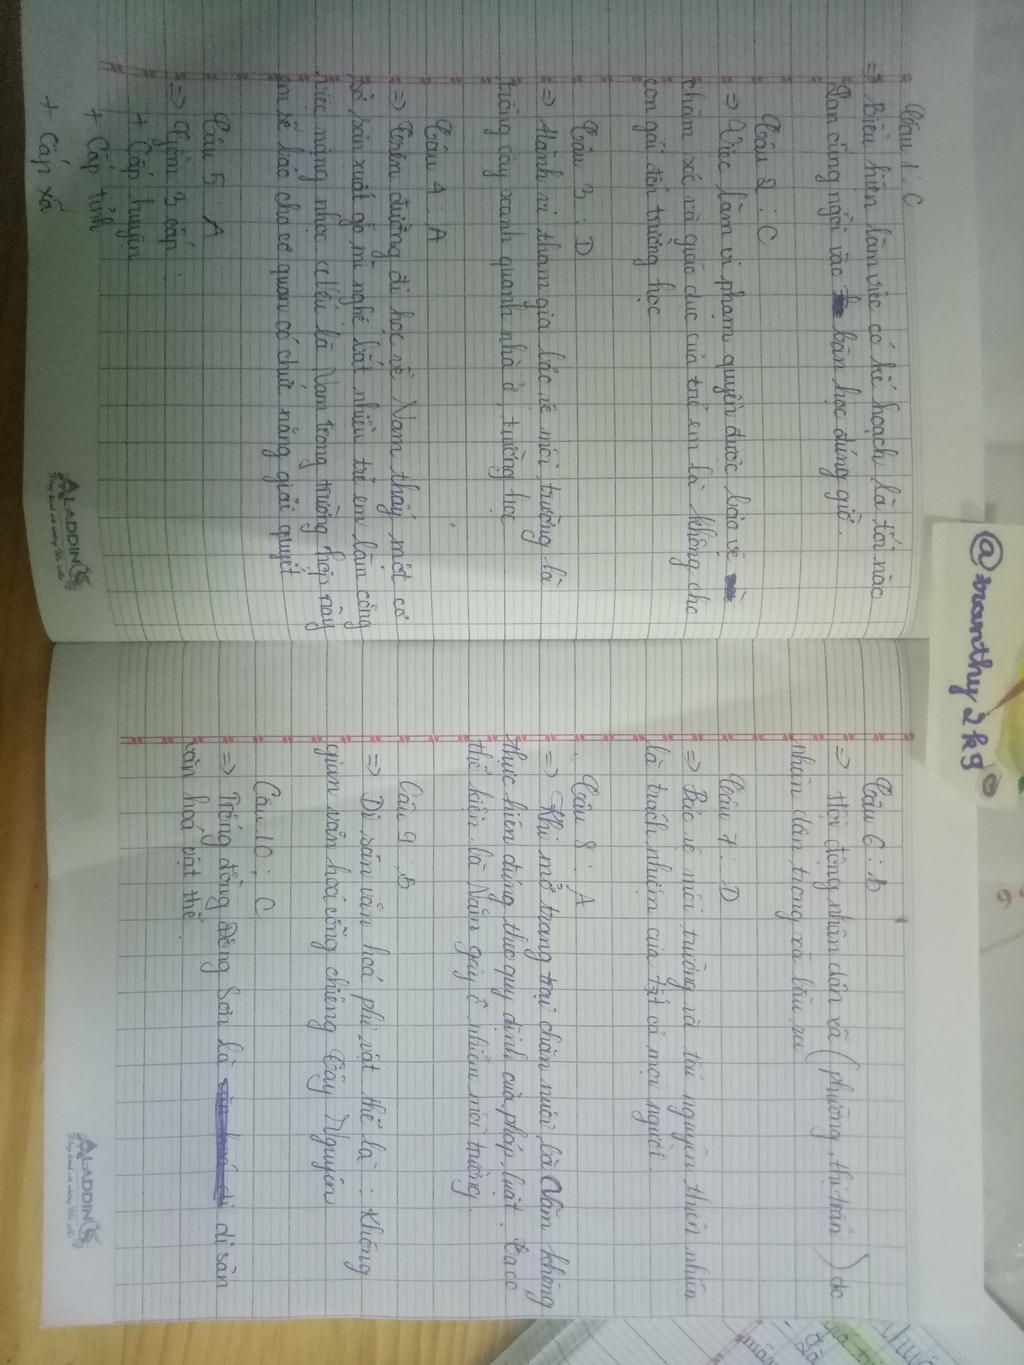 Câu 1 : C
=> Biểu hiện làm việc có kế hoạch là tối nào
Lan cũng ngồi vào bàn học đúng giờ.
Câu 2 : C
=> Việc làm vi phạm quyền được bảo vệ
chăm sóc và giáo dục của trẻ em là không cho
con gái đến trường học
Câu 3 : D
=> Hành vi tham gia bảo vệ môi trường là
trồng cây xanh quanh nhà ở, trường học
Câu 4 : A
=> Trên đường đi học về Nam thấy một cơ
sở sản xuất gỗ mĩ nghệ bắt nhiều trẻ em làm công
việc nặng nhọc nếu là Nam trong trường hợp này
em sẽ báo cho cơ quan có chức năng giải quyết
Câu 5 A
=> Gồm 3 cấp :
+ Cấp huyện
+ Cấp tỉnh
+ Cấp xã
ALADDIN
Câu 6 : B
=> Hội đồng nhân dân xã (phường, thị trấn) do
nhân dân trong xã bầu ra
Câu 7 : D
=> Bảo vệ môi trường và tài nguyên thiên nhiên
là trách nhiệm của tất cả mọi người.
Câu 8 : A
=> Khi mở trang trại chăn nuôi, bà Năm không
thực hiện đúng theo quy định của pháp luật.
thể hiện là Năm gây ô nhiễm môi trường.
Câu 9 : B
=> Di sản văn hoá phi vật thể là : Không
gian văn hoá cồng chiêng Tây Nguyên
Câu 10 : C
=> Trống đồng Đông Sơn là di sản
văn hoá vật thể.
ALADDIN
@tranthy2kg